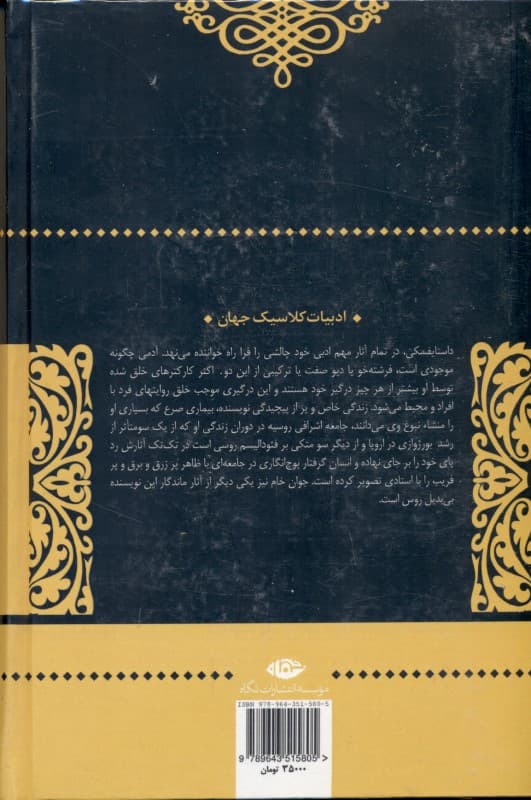 ادبیات کلاسیک جهان
داستایفسکی، در تمام آثار مهم ادبی خود چالشی را فرا راه خواننده می‌نهد. آدمی چگونه
موجودی است، فرشته‌خو یا دیو صفت یا ترکیبی از این دو. اکثر کارکترهای خلق شده
توسط او بیشتر از هر چیز درگیر خود هستند و این درگیری موجب خلق روایتهای فرد با
افراد و محیط می‌شود. زندگی خاص و پر از پیچیدگی نویسنده، بیماری صرع که بسیاری او را
منشاء نبوغ وی می‌دانند، جامعه اشرافی روسیه در دوران زندگی او که از یک سو متأثر از
رشد بورژوازی در اروپا و از دیگر سو متکی بر فئودالیسم روسی است در تک‌تک آثارش رد
پای خود را بر جای نهاده و انسان گرفتار پوچ‌انگاری در جامعه‌ای با ظاهر پر زرق و برق و پر
فریب را با استادی تصویر کرده است. جوان خام نیز یکی دیگر از آثار ماندگار این نویسنده
بی‌بدیل روس است.
نگاه
موسسه انتشارات نگاه
ISBN 978-964-351-580-5
9 789643 515805 >
۳۵۰۰۰ تومان